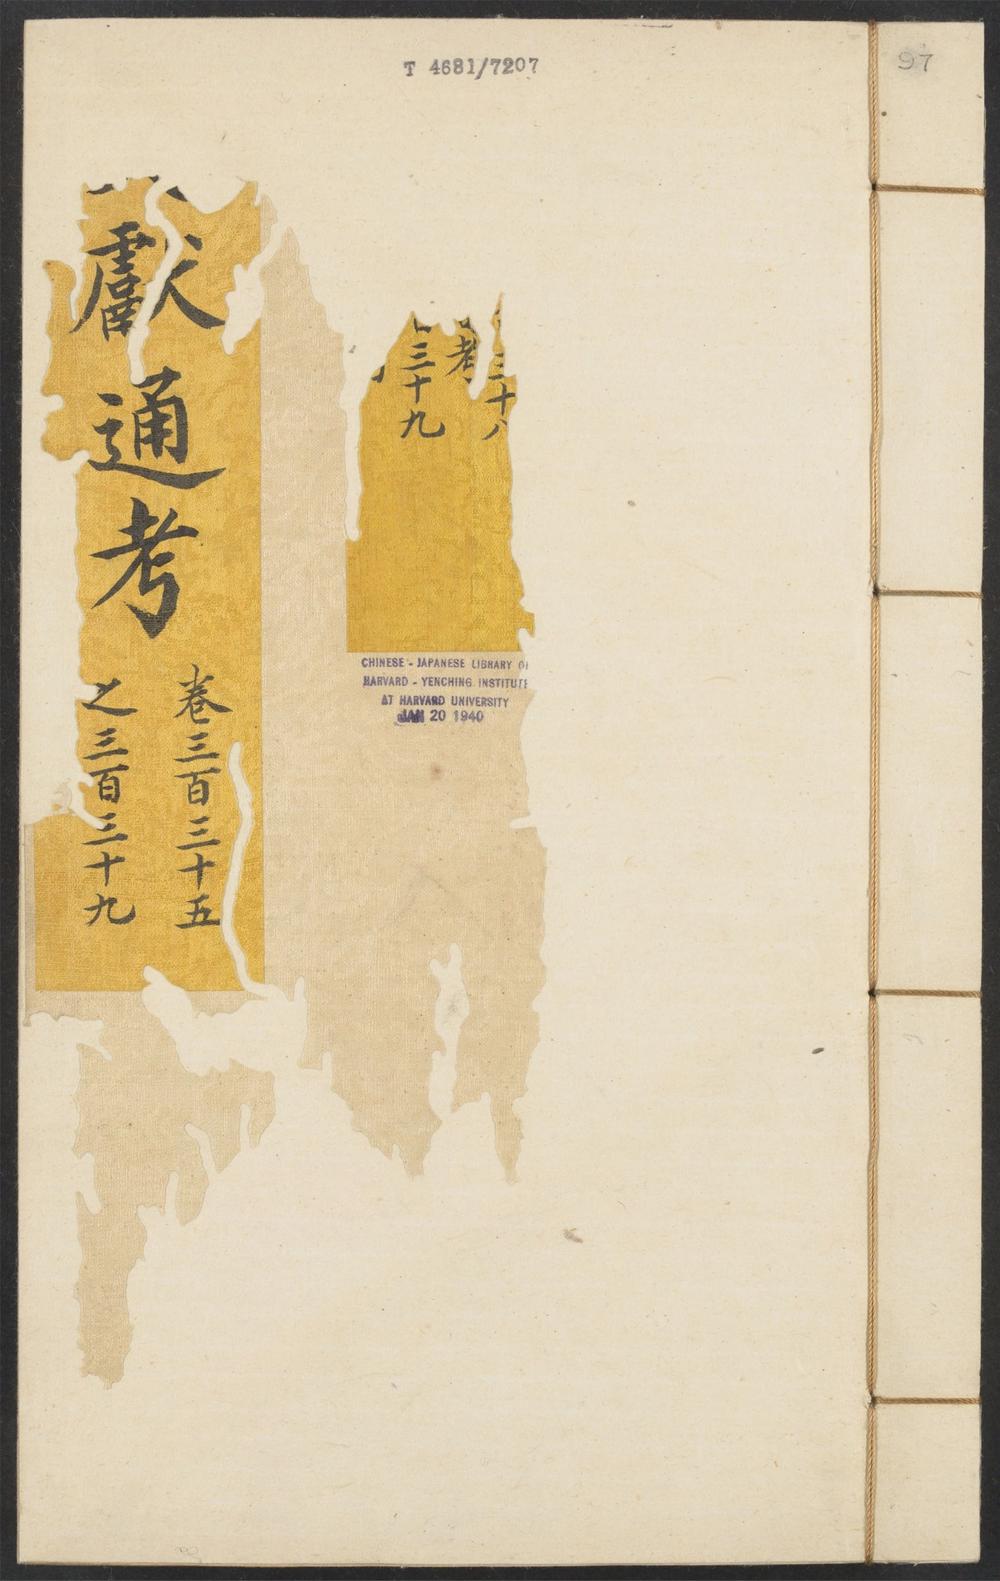 T 4681/7207
97
獻通考
卷三百三十五
之三百三十九
三十八
考
三十九
CHINESE - JAPANESE LIBRARY OF
HARVARD - YENCHING INSTITUTE
AT HARVARD UNIVERSITY
JAN 20 1940